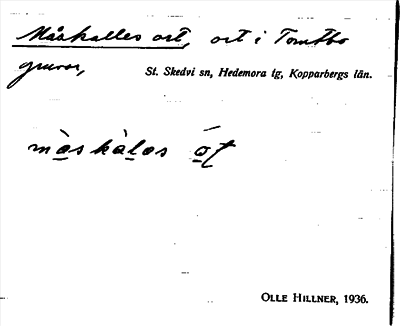 Måskalles ort, ort i Tomtbo
gruvor,
St. Skedvi sn, Hedemora tg, Kopparbergs län.
màskàlas
OLLE HILLNER, 1936.